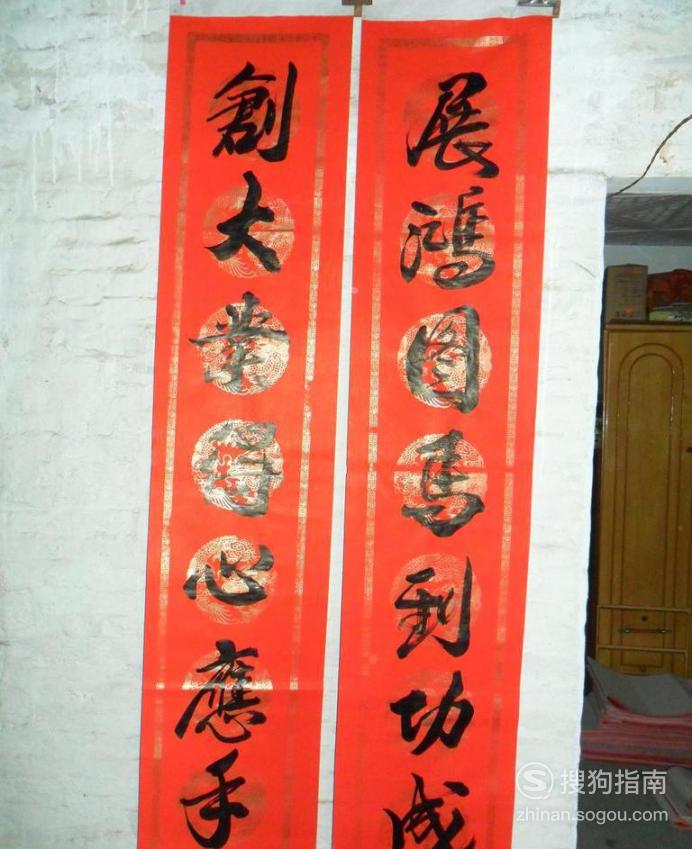 展鴻图馬到功成
創大業得心應手
搜狗指南
zhinan.sogou.com